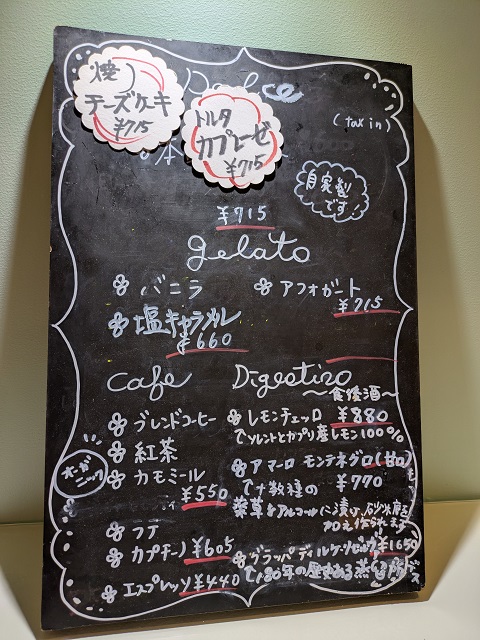 Dolce
焼
チーズケーキ
¥715
トルタ
カプレーゼ
¥715
(tax in)
自家製
です!
¥715
gelato
バニラ
アフォガート
¥715
塩キャラメル
¥660
Cafe
ブレンドコーヒー
紅茶
カモミール
¥550
オーガ
ニック
ラテ
カプチーノ ¥605
エスプレッソ ¥440
Digestivo
〜食後酒〜
レモンチェッロ ¥880
ソレントとカプリ産レモン100%
アマーロ モンテネグロ(甘口)
十数種の ¥770
薬草をアルコールに漬け、砂糖を
加え作られます
グラッパ ディ ¥1650
180年の歴史ある蒸留所デス